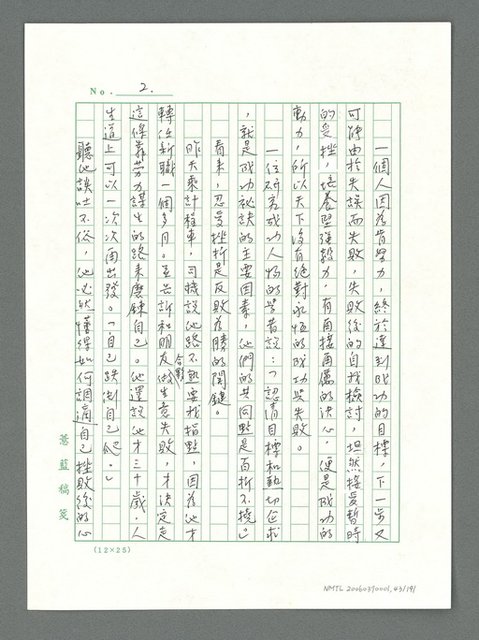 No. 2.
一個人因為肯努力,終於達到成功的目標,下一步又
可能由於失誤而失敗,失敗後的自我檢討,坦然接受暫時
的受挫,培養堅強毅力,有再接再厲的決心,便是成功的
動力,所以天下沒有絕對永恒的成功與失敗。
一位研究成功人物的學者說:「認清目標和熱切企求
,就是成功祕訣的主要因素,他們的共同點是百折不撓。」
看來,忍受挫折是反敗為勝的關鍵。
昨天乘計程車,司機說他路不熟要我指點,因為他才
轉任新職一個多月。並告訴和朋友合夥做生意失敗,才決定走
這條靠勞力謀生的路來磨鍊自己。他還說他才三十歲,人
生道上可以一次次再出發。「自己跌倒自己爬。」
聽他談吐不俗,他必然懂得如何調適自己挫敗後的心
薏藍稿箋
(12×25)
NMTL 20060370001,43/191